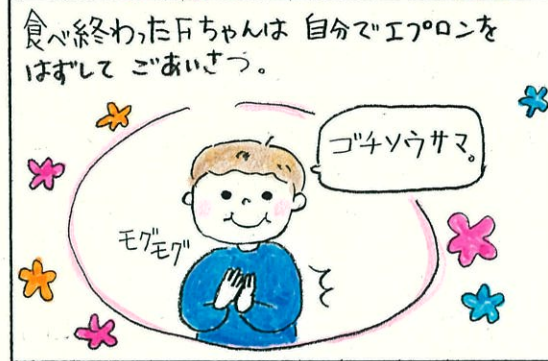 食べ終わったFちゃんは 自分でエプロンを
はずして ごあいさつ。
ゴチソウサマ。
モグ
モグ